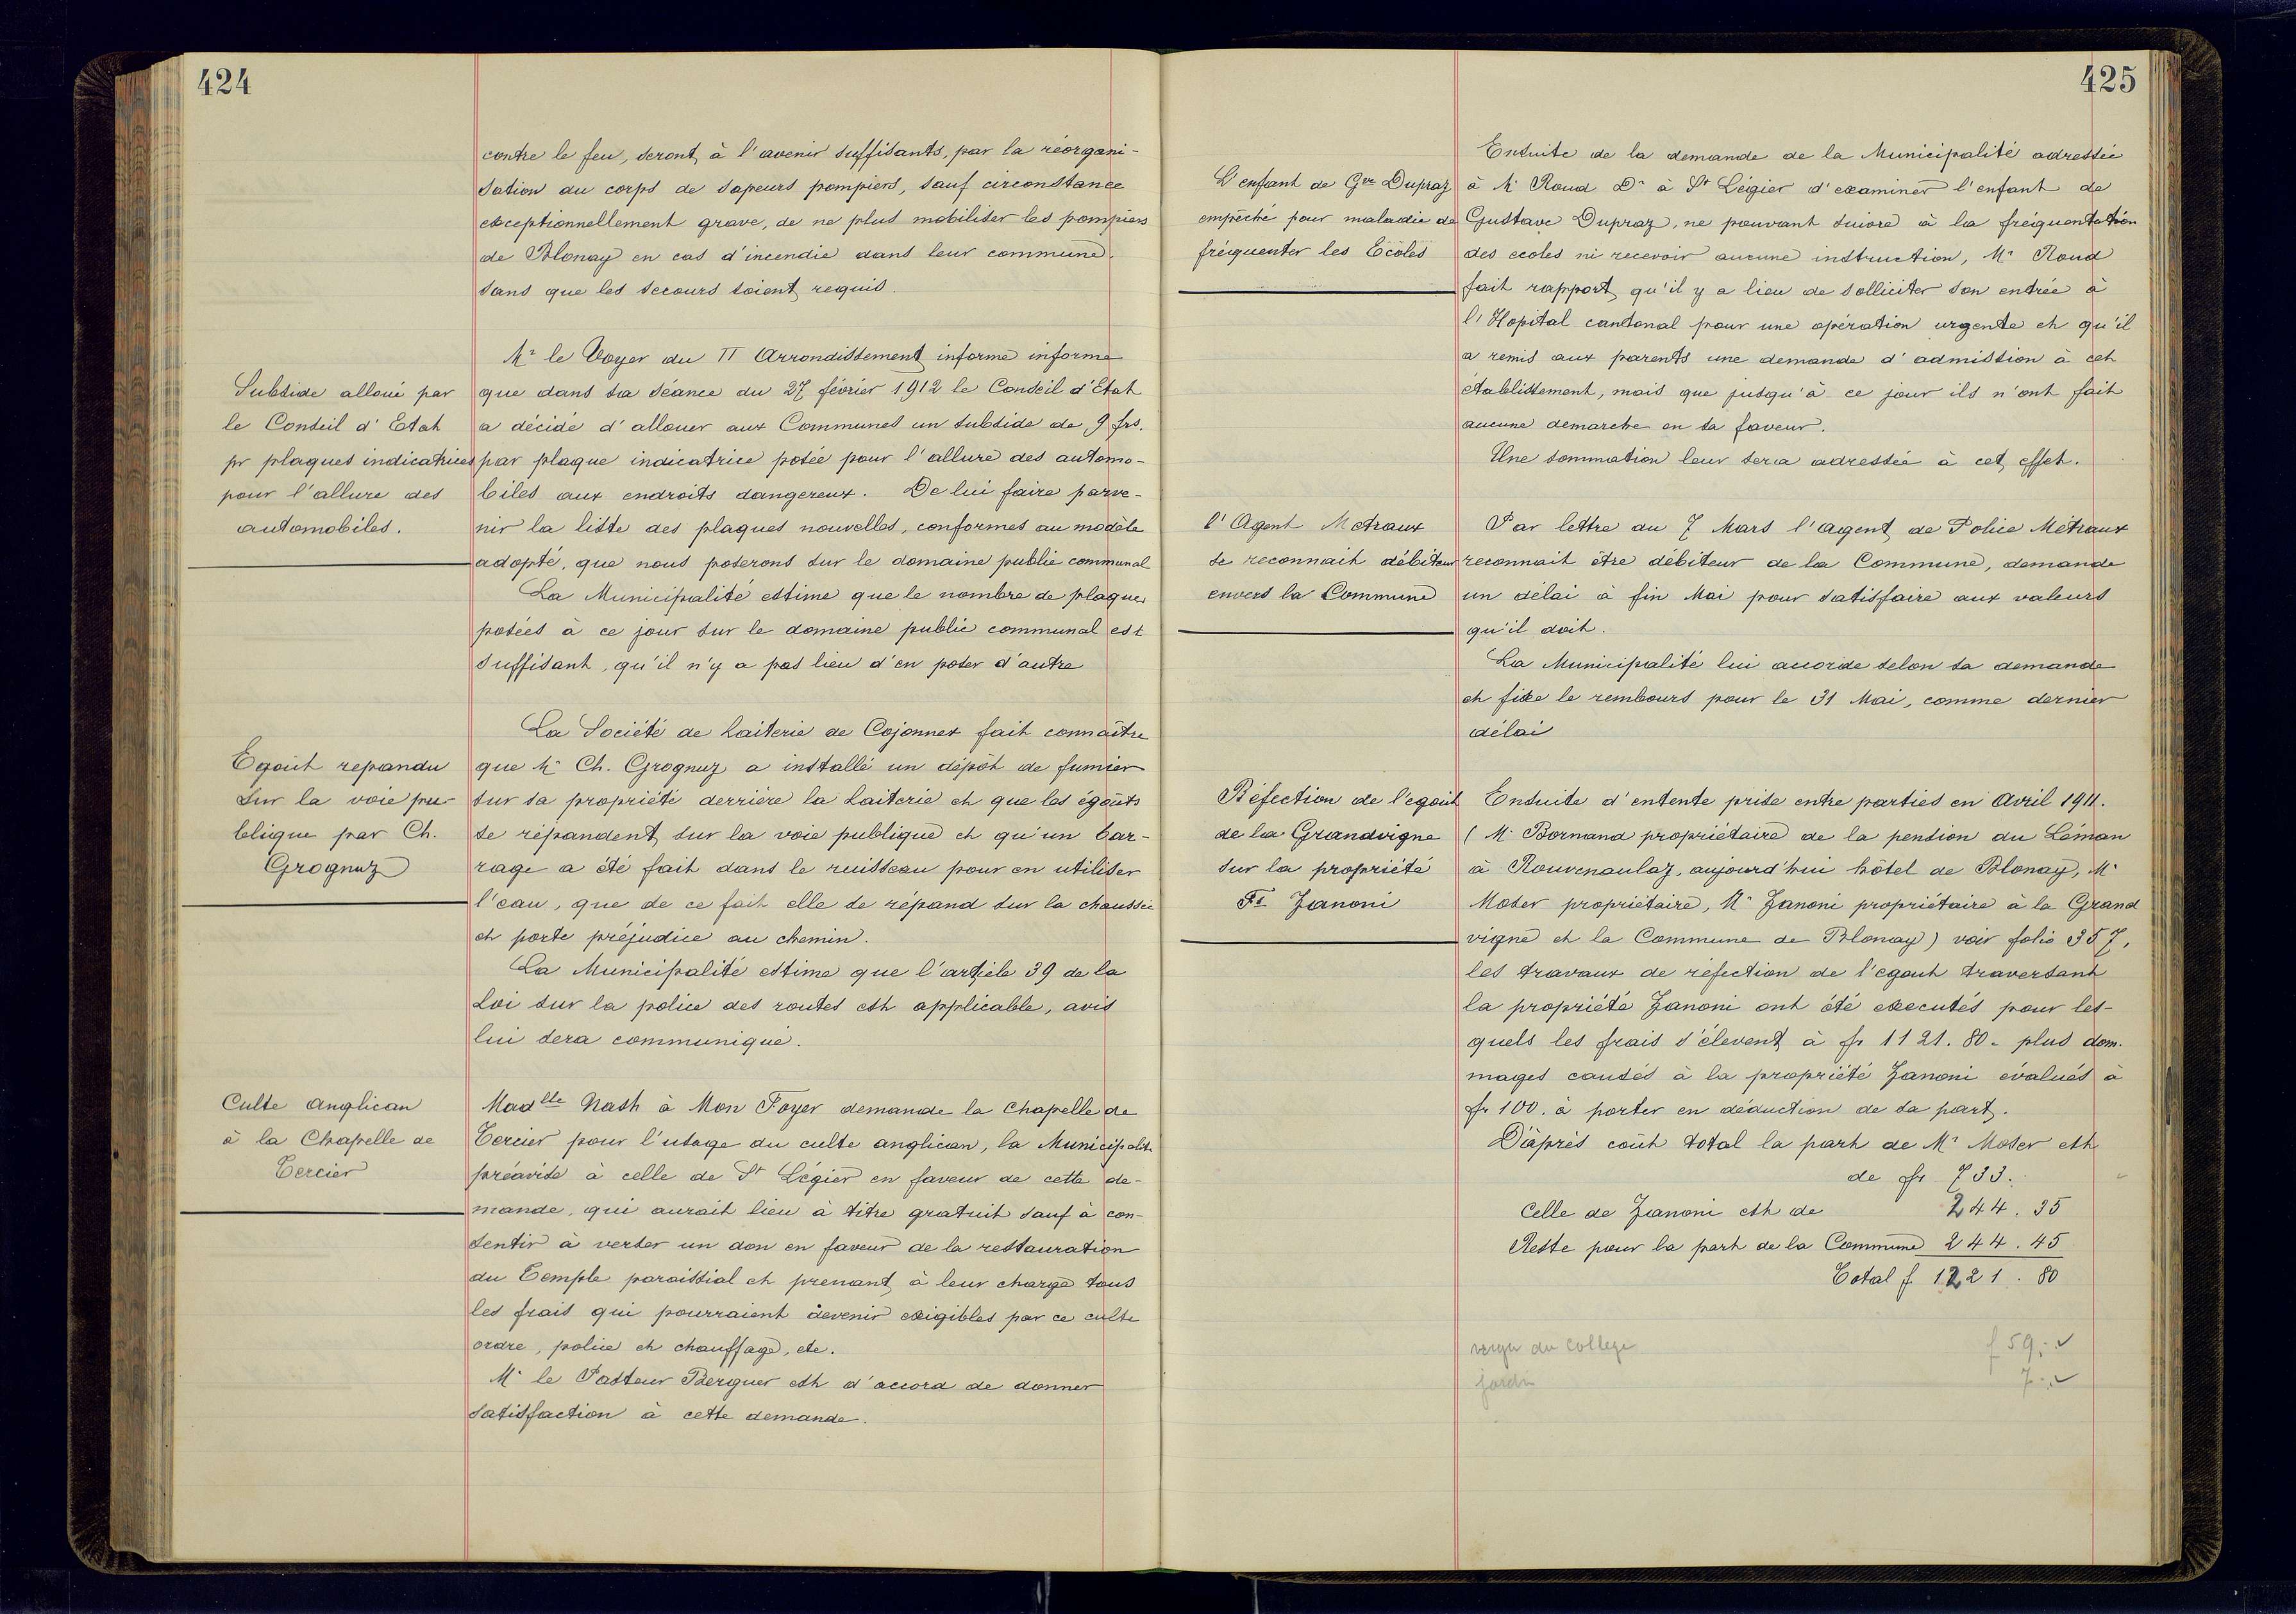 424
contre le feu, seront à l'avenir suffisants, par la réorgani-
sation du corps de sapeurs pompiers, sauf circonstance
exceptionnellement grave, de ne plus mobiliser les pompiers
de Blonay en cas d'incendie dans leur commune.
sans que les secours soient requis.
Subside alloué par
le Conseil d'Etat
pr plaques indicatrices
pour l'allure des
automobiles.
Mr le Voyer du II Arrondissement informe informe
que dans sa séance du 27 février 1912 le Conseil d'Etat
a décidé d'allouer aux Communes un subside de 9 frs.
par plaque indicatrice posée pour l'allure des automo-
biles aux endroits dangereux. De lui faire parve-
nir la liste des plaques nouvelles, conformes au modèle
adopté, que nous poserons sur le domaine public communal
La Municipalité estime que le nombre de plaques
posées à ce jour sur le domaine public communal est
suffisant, qu'il n'y a pas lieu d'en poser d'autre
Egoût repandu
sur la voie pu-
blique par Ch.
Grognuz
La Société de Laiterie de Cojonnex fait connaître
que Mr Ch. Grognuz a installé un dépôt de fumier
sur sa propriété derrière la Laiterie et que les égoûts
se répandent sur la voie publique et qu'un bar-
rage a été fait dans le ruisseau pour en utiliser
l'eau, que de ce fait elle se répand sur la chaussée
et porte préjudice au chemin.
La Municipalité estime que l'article 39 de la
Loi sur la police des routes est applicable, avis
lui sera communiqué.
Culte anglican
à la Chapelle de
Tercier
Madlle Nash à Mon Foyer demande la Chapelle de
Tercier pour l'usage du culte anglican, la Municipalité
préavise à celle de St Légier en faveur de cette de-
mande, qui aurait lieu à titre gratuit sauf à con-
sentir à verser un don en faveur de la restauration
du Temple paroissial et prenant à leur charge tous
les frais qui pourraient devenir exigibles par ce culte
ordre, police et chauffage, etc.
Mr le Pasteur Berguer est d'accord de donner
satisfaction à cette demande.
425
L'enfant de Gve Dupraz
empêché pour maladie de
fréquenter les Ecoles
Ensuite de la demande de la Municipalité adressée
à Mr Roud Dr à St Légier d'examiner l'enfant de
Gustave Dupraz, ne pouvant suivre à la fréquentation
des ecoles ni recevoir aucune instruction, Mr Roud
fait rapport qu'il y a lieu de solliciter son entrée à
l'Hopital cantonal pour une opération urgente et qu'il
a remis aux parents une demande d'admission à cet
établissement, mais que jusqu'à ce jour ils n'ont fait
aucune demarche en sa faveur.
Une sommation leur sera adressée à cet effet.
l'Agent Metraux
se reconnait débiteur
envers la Commune
Par lettre du 7 Mars l'agent de Police Métraux
reconnait être débiteur de la Commune, demande
un délai à fin Mai pour satisfaire aux valeurs
qu'il doit.
La Municipalité lui accorde selon sa demande
et fixe le rembours pour le 31 Mai, comme dernier
délai
Réfection de l'egout
de la Grandvigne
sur la propriété
Fs Zanoni
Ensuite d'entente prise entre parties en Avril 1911.
(Mr Bornand propriétaire de la pension du Léman
à Rouvenaulaz, aujourd'hui hôtel de Blonay, Mr
Moser propriétaire, Mr Zanoni propriétaire à la Grand
vigne et la Commune de Blonay) voir folio 357,
les travaux de réfection de l'egout traversant
la propriété Zanoni ont été executés pour les-
quels les frais s'élevent à fr 1121.80 - plus dom-
mages causés à la propriété Zanoni évalués à
fr 100. à porter en déduction de sa part.
D'après coût total la part de Mr Moser est
de fr 733.
Celle de Zanoni est de 244.35
Reste pour la part de la Commune 244.45
Total f 1221.80
verger du college f 59.-
jardin 7.-